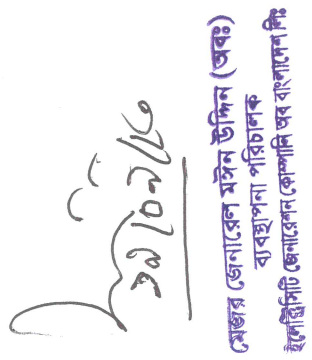 মেজর জেনারেল মঈন উদ্দিন (অবঃ)
ব্যবস্থাপনা পরিচালক
ইলেক্ট্রিসিটি জেনারেশন কোম্পানি অব বাংলাদেশ লিঃ